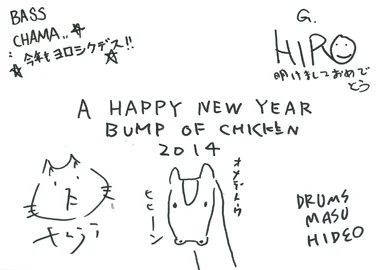 BASS
CHAMA..☆
☆今年もヨロシクデス!!☆
G.
HIRO
明けましておめで
とう
A HAPPY NEW YEAR
BUMP OF CHICKEN
2014
オメデトウ
ヒヒーン
DRUMS
MASU
HIDEO